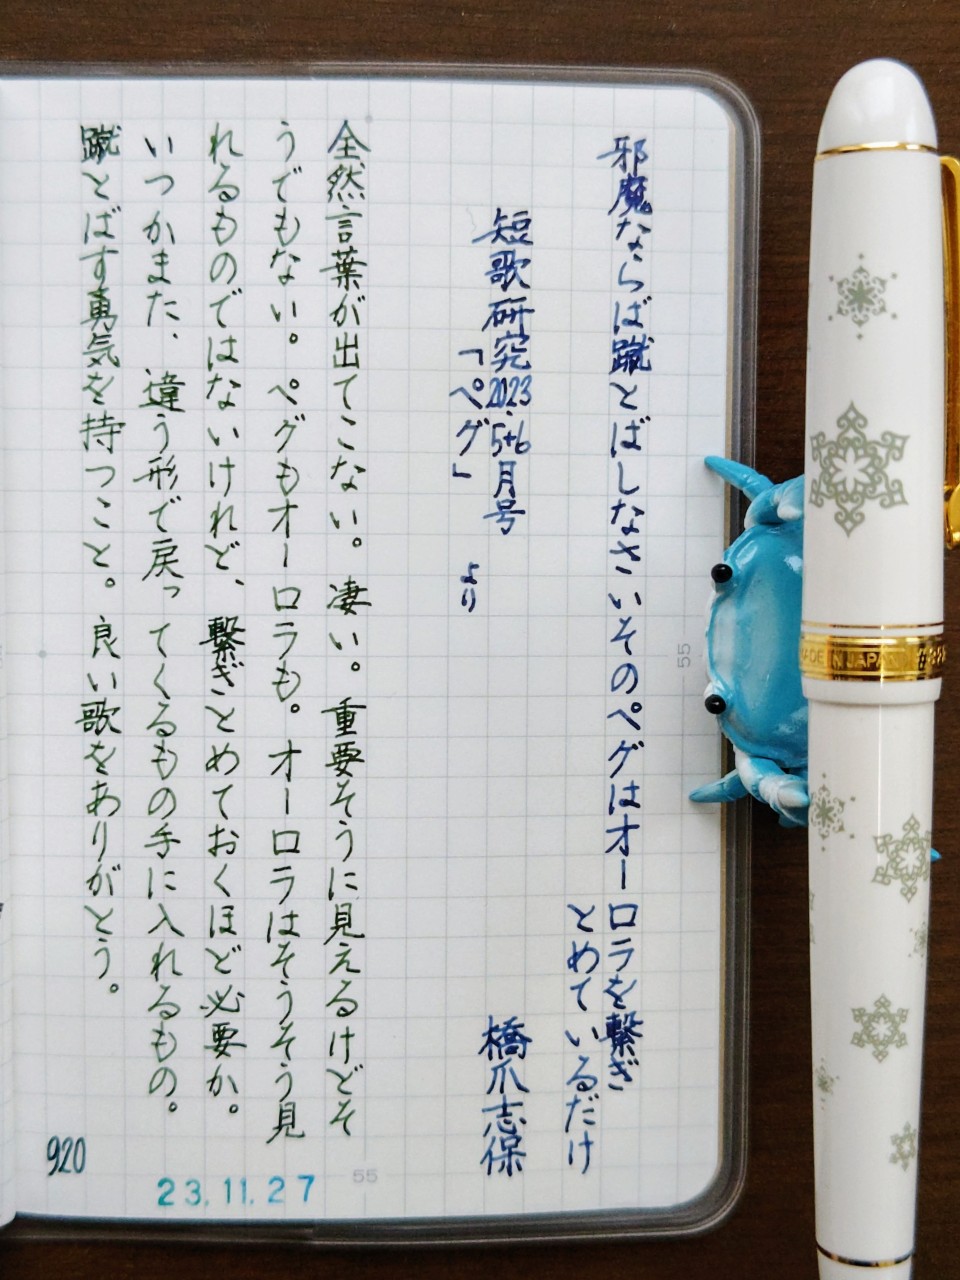 邪魔ならば蹴とばしなさいそのペグはオーロラを繋ぎ
とめているだけ
短歌研究2023.5+6月号
「ペグ」より
橋爪志保
全然言葉が出てこない。凄い。重要そうに見えるけどそ
うでもない。ペグもオーロラも。オーロラはそうそう見
れるものではないけれど、繋ぎとめておくほど必要か。
いつかまた、違う形で戻ってくるもの手に入れるもの。
蹴とばす勇気を持つこと。良い歌をありがとう。
920
23.11.27
55
55
MADE IN JAPAN